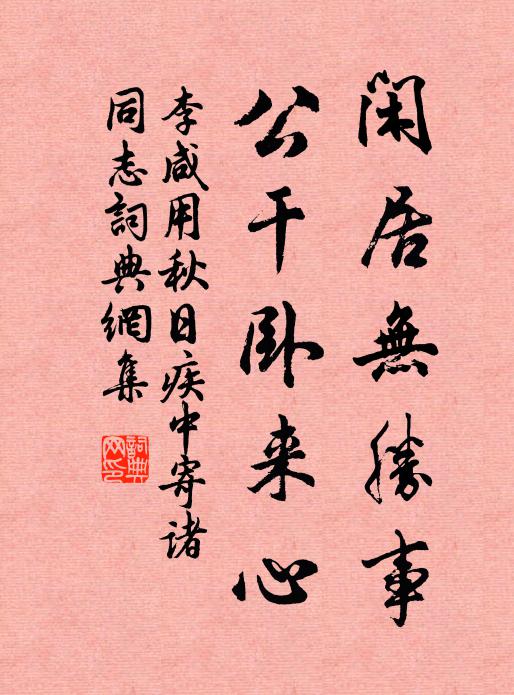 閑居無勝事
公干卧来心
李咸用秋日疾中寄诸
同志詞典網集
詞典
网印